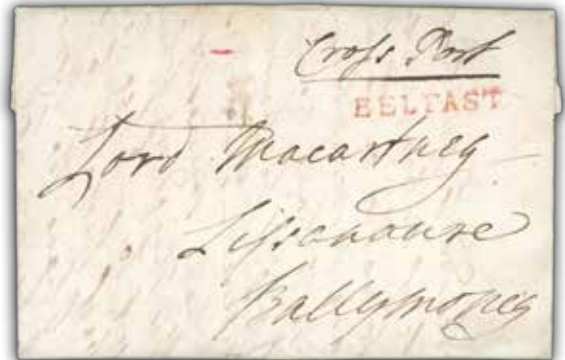 Cross Post
BELFAST
Lord Macartney
Lissanoure
Ballymoney